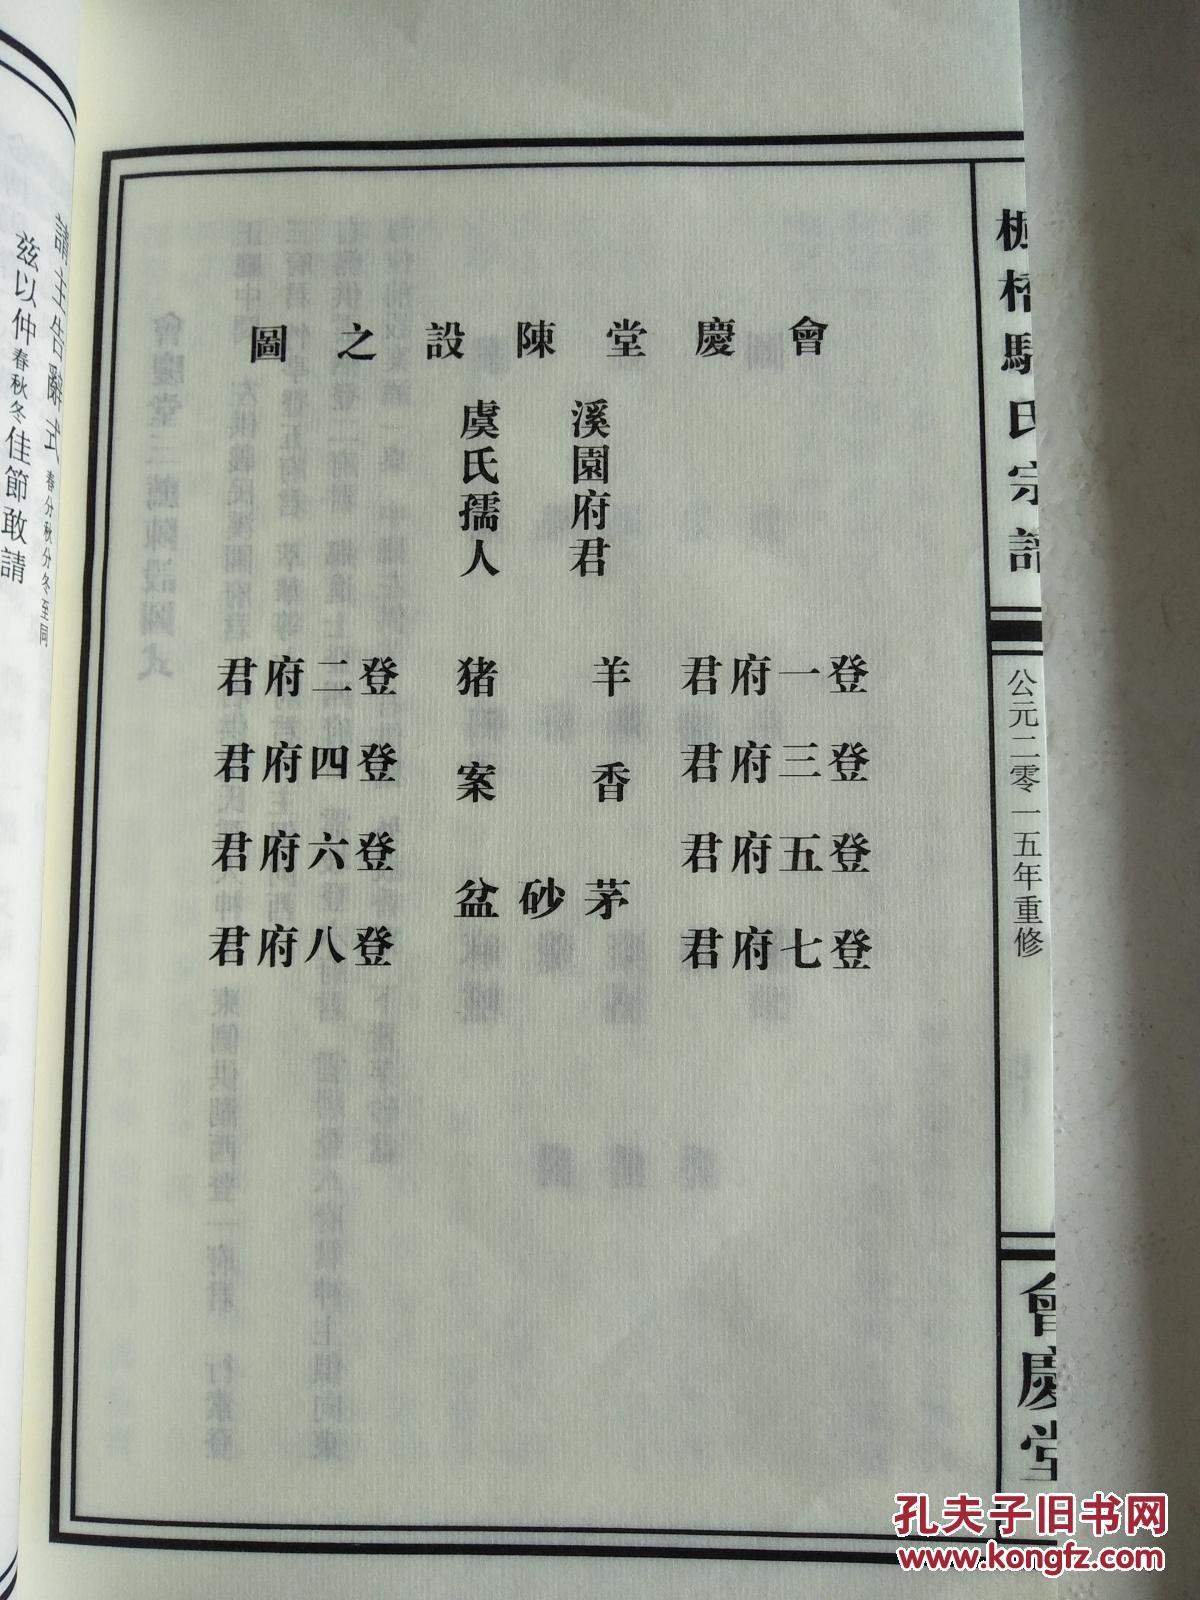 氏宗譜
公元二零一五年重修
會慶堂
會慶堂陳設之圖
溪園府君
虞氏孺人
登一府君
登三府君
登五府君
登七府君
羊
猪
香
案
茅砂盆
登二府君
登四府君
登六府君
登八府君
請主告辭式 春分秋分冬至同
茲以仲春秋冬佳節敢請
孔夫子旧书网
www.kongfz.com